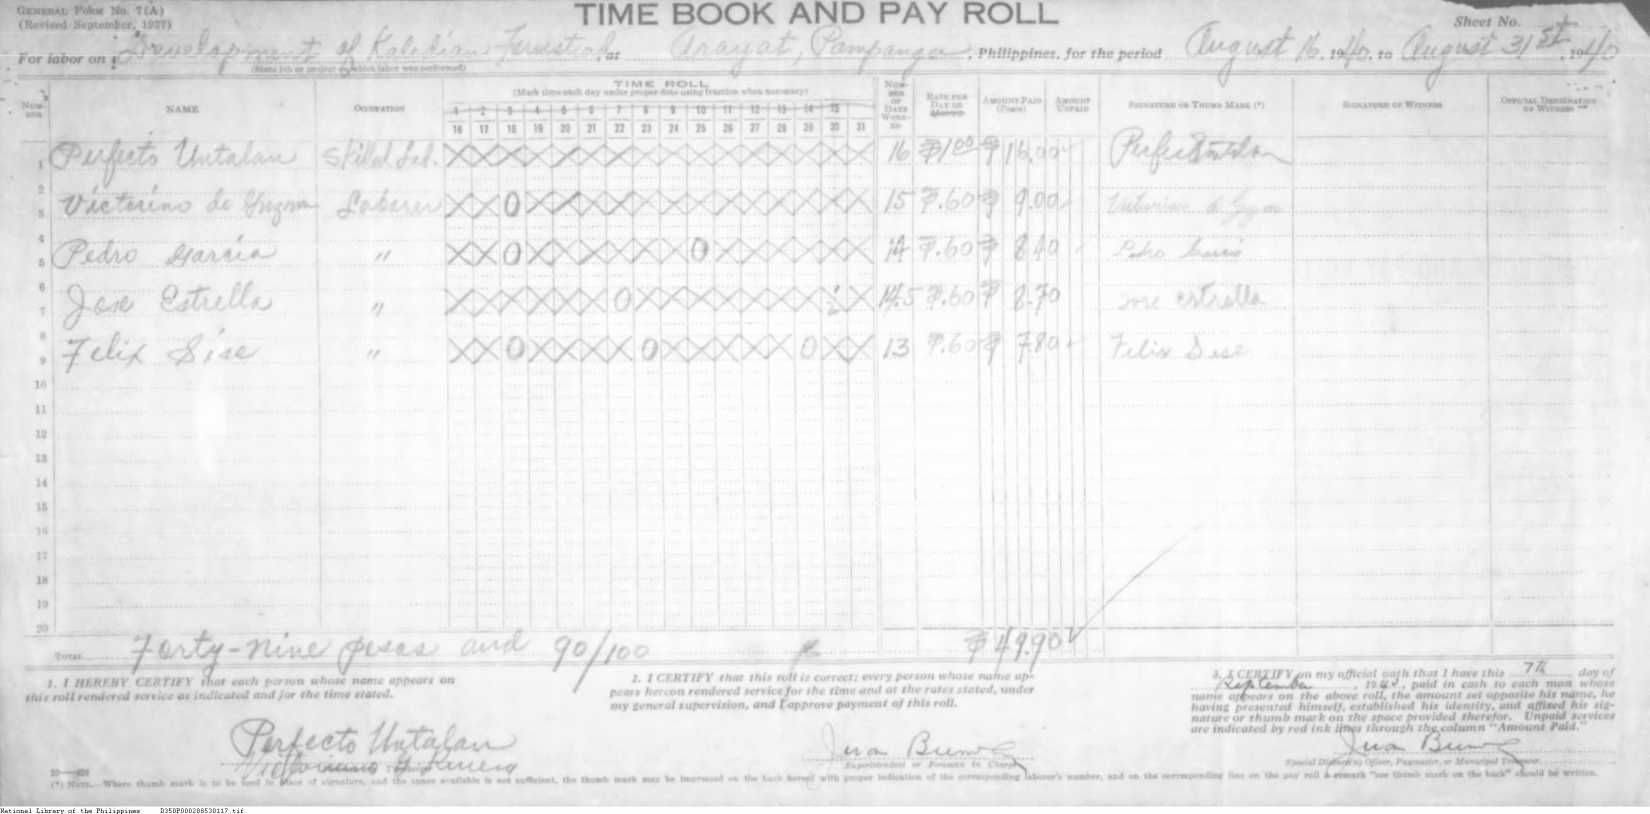 GENERAL FORM NO. 7(A)
(Revised September, 1937)
TIME BOOK AND PAY ROLL
Sheet No.
For labor on Development of Homestead, at Arayat, Pampanga, Philippines, for the period August 16, 1940, to August 31st, 1940
(State job or project on which labor was performed)
TIME ROLL
(Mark time each day under proper date using fraction when necessary)
NUMBER NAME OCCUPATION NUMBER OF DAYS WORKED RATE PER DAY OR MONTH AMOUNT PAID (PESOS) AMOUNT UNPAID SIGNATURE OR THUMB MARK (*) SIGNATURE OF WITNESS OFFICIAL DESIGNATION OF WITNESS
1 2 3 4 5 6 7 8 9 10 11 12 13 14 15
16 17 18 19 20 21 22 23 24 25 26 27 28 29 30 31
1 Perfecto Untalan Skilled Lab. X X X X X X X X X X X X X X X X 16 ₱1.00 ₱ 16.00 Perfecto Untalan
2
3 Victorino de Guzman Laborer X X 0 X X X X X X X X X X X X X 15 ₱.60 ₱ 9.00 Victorino de Guzman
4
5 Pedro Garcia " X X 0 X X X X X X 0 X X X X X X 14 ₱.60 ₱ 8.40 Pedro Garcia
6
7 Jose Estrella " X X X X X X 0 X X X X X X X ½ X 14.5 ₱.60 ₱ 8.70 Jose Estrella
8
9 Felix Sise " X X 0 X X X X 0 X X X X X 0 X X 13 ₱.60 ₱ 7.80 Felix Sise
10
11
12
13
14
15
16
17
18
19
20
TOTAL Forty-nine pesos and 90/100 ₱ 49.90
1. I HEREBY CERTIFY that each person whose name appears on this roll rendered service as indicated and for the time stated.
Perfecto Untalan
2. I CERTIFY that this roll is correct; every person whose name appears hereon rendered service for the time and at the rates stated, under my general supervision, and I approve payment of this roll.
Juan
Superintendent or Foreman in Charge
3. I CERTIFY on my official oath that I have this 7th day of September, 1940, paid in cash to each man whose name appears on the above roll, the amount set opposite his name, he having presented himself, established his identity, and affixed his signature or thumb mark on the space provided therefor. Unpaid services are indicated by red ink lines through the column "Amount Paid."
Juan
Special Disbursing Officer, Paymaster, or Municipal Treasurer
(*) NOTE.—Where thumb mark is to be used in place of signature, and the space available is not sufficient, the thumb mark may be impressed on the back hereof with proper indication of the corresponding laborer's number, and on the corresponding line on the pay roll a remark "see thumb mark on the back" should be written.
National Library of the Philippines D350P000288530117.tif